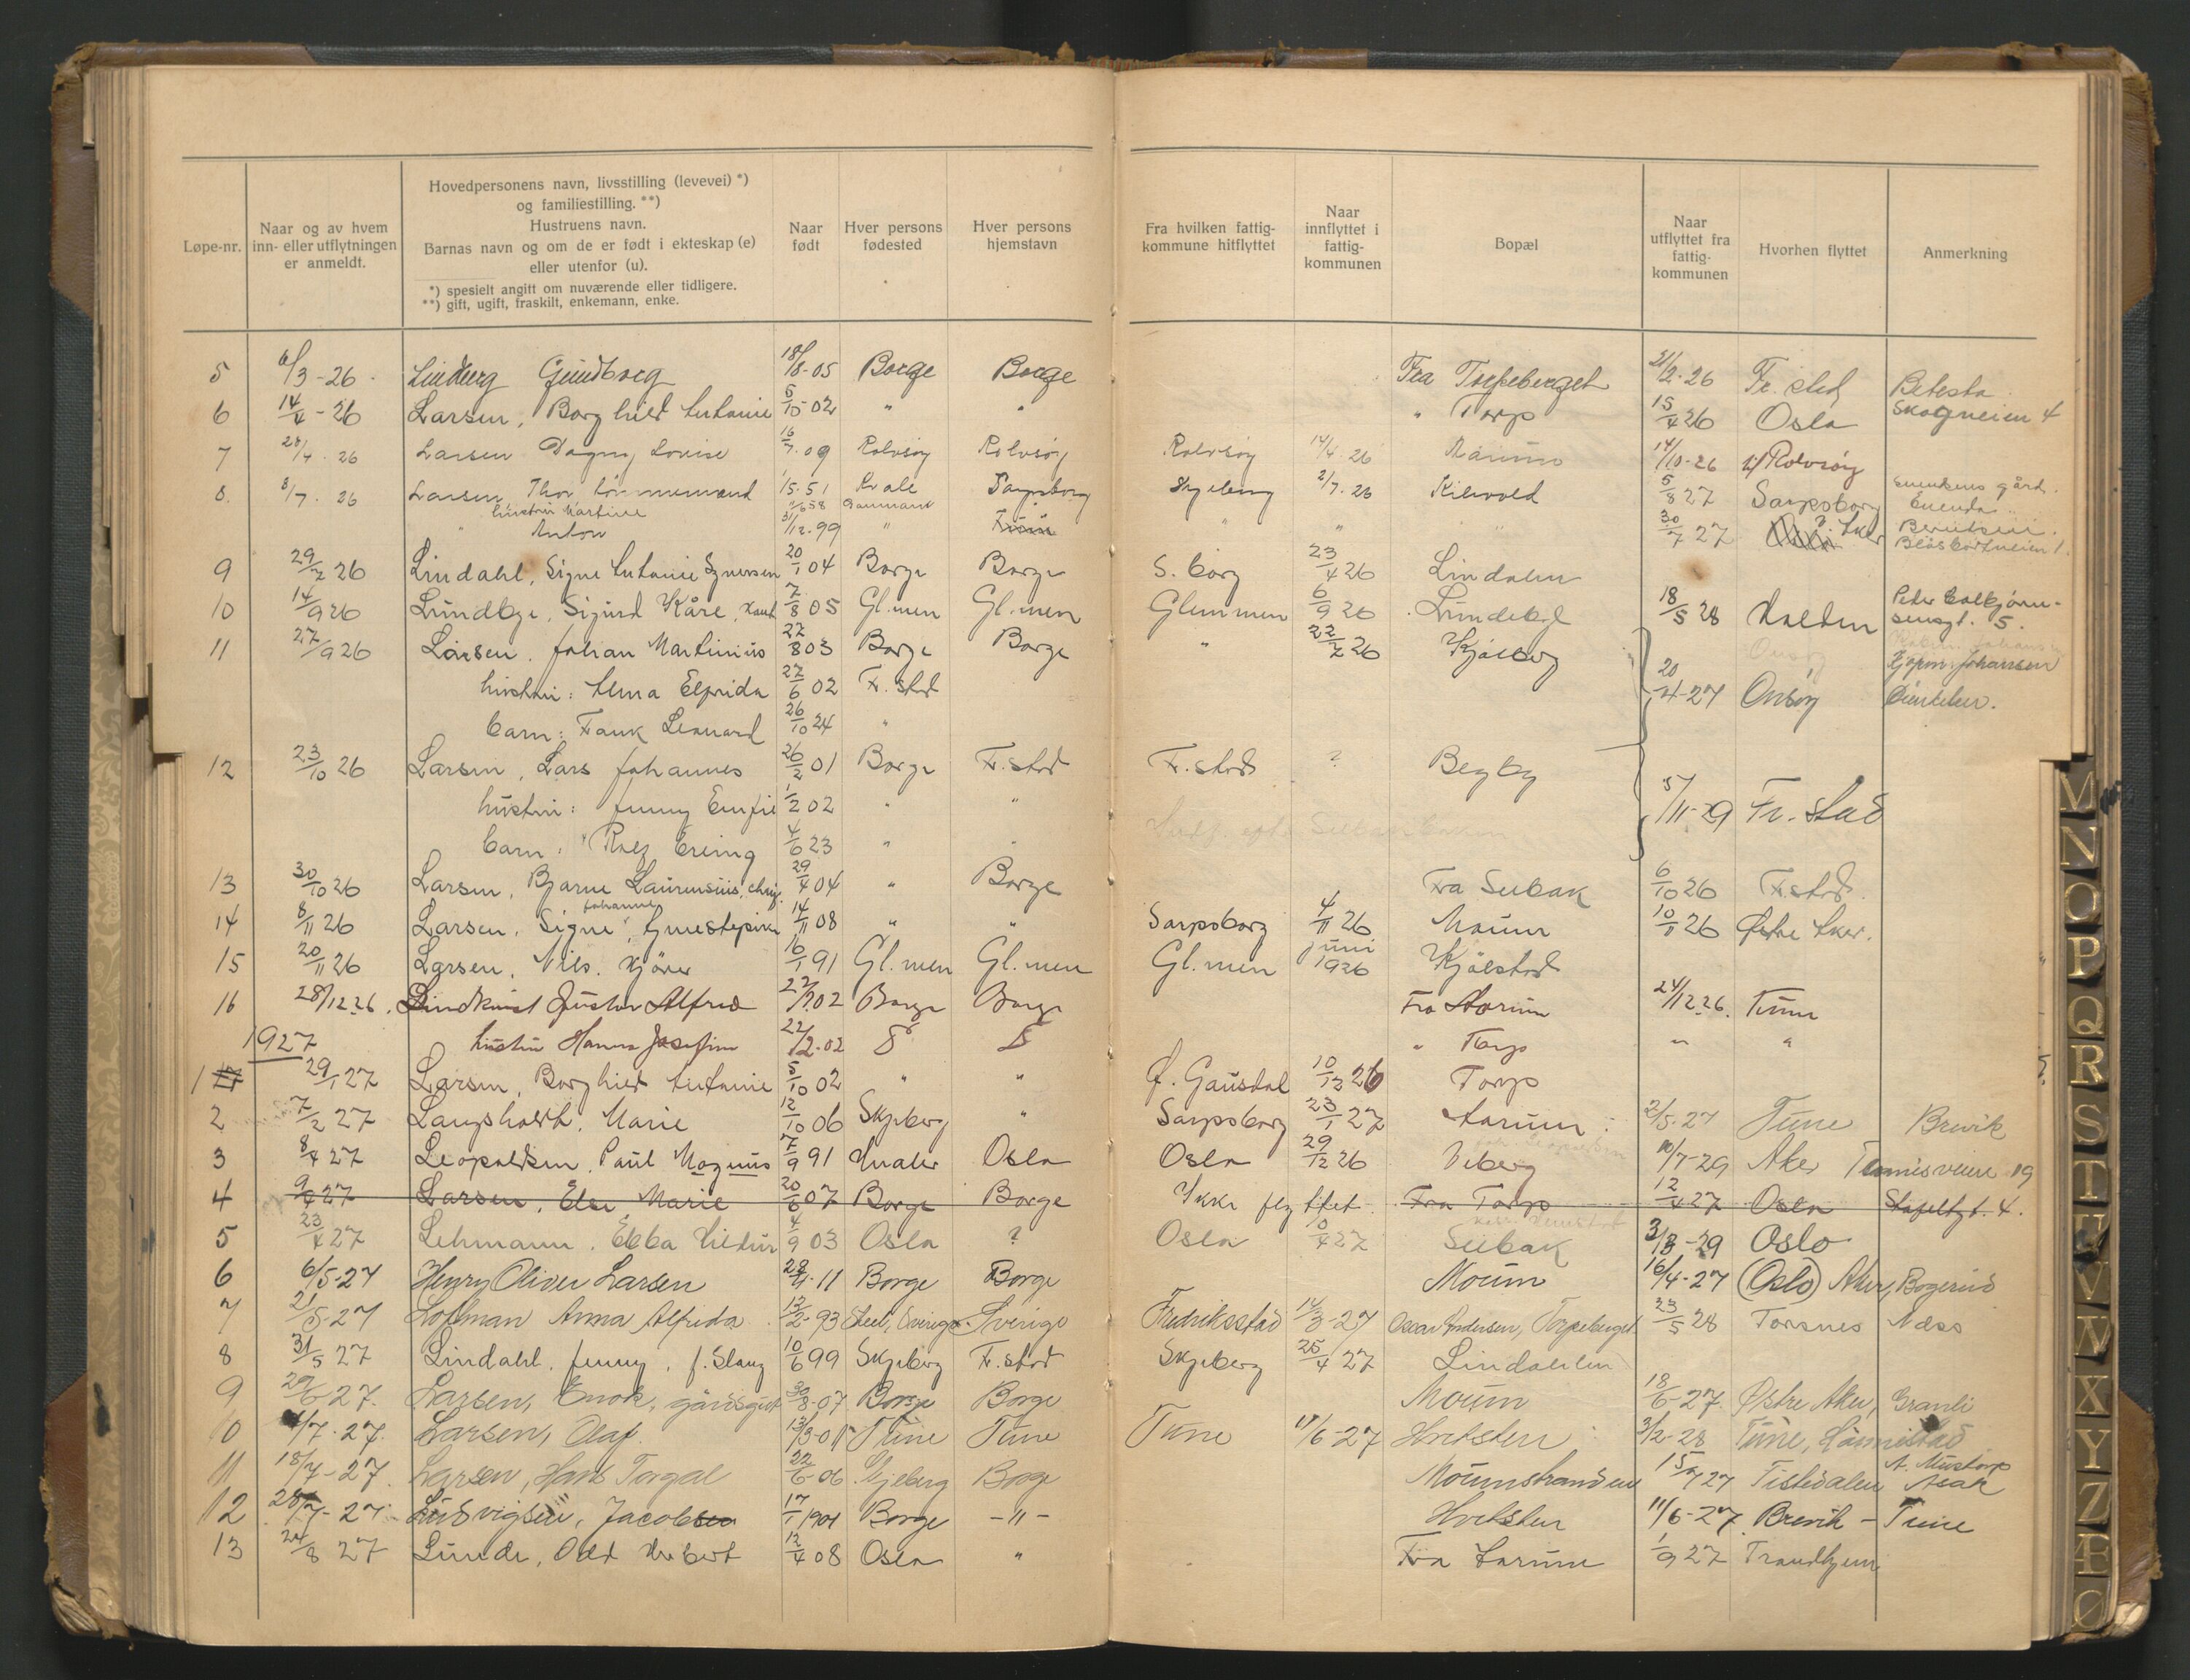 Løpe-nr.
Naar og av hvem inn- eller utflytningen er anmeldt.
Hovedpersonens navn, livsstilling (levevei) *) og familiestilling. **)
Hustruens navn.
Barnas navn og om de er født i ekteskap (e) eller utenfor (u).
*) spesielt angitt om nuværende eller tidligere.
**) gift, ugift, fraskilt, enkemann, enke.
Naar født
Hver persons fødested
Hver persons hjemstavn
Fra hvilken fattigkommune hitflyttet
Naar innflyttet i fattigkommunen
Bopæl
Naar utflyttet fra fattigkommunen
Hvorhen flyttet
Anmerkning
5 6/3-26 Lindberg Gundborg 18/8-05 Borge Borge Fra Torpeberget 21/2-26 Fr. stad Betesta
6 14/4-26 Larsen, Borghild Antonie 5/10-02 " " " Torp 15/4 26 Oslo Skogveien 4
7 28/4 26 Larsen Dagny Lovise 16/7-09 Rolvsøy Rolvsøy Rolvsøy 14/4 26 14/10-26 Rolvsøy
8. 8/7 26 Larsen, Thor, tømmermand 1/5-51 Sarpsborg Skjeberg 2/7-26 5/8 27 Sarpsborg
hustru Martine
" Anton 31/12-99 " " " 30/7 27 Aker
9 29/7 26 Lindahl, Signe Antonie Synersen 20/1 04 Borge Borge S. borg 23/4 26 Lindalen
10 14/9 26 Lundbye, Sigurd Kåre, 7/8 05 Gl.men Gl.men Glemmen 6/9 26 Lundeby 18/5 28 Halden sensgt. 5.
11 27/9 26 Larsen, Johan Martinius 27/8 03 Borge Borge " 22/7 26 Kjølberg
hustru: Alma Elfrida 27/6 02 F. stad 20/4-27 Onsøy Johanssen
barn: Leonard 26/10 24 "
12 23/10 26 Larsen, Lars Johannes 26/2 01 Borge F. stad F. stad ? Begby
hustru: Jenny Emfie 1/2 02 " " 5/11-29 Fr. stad
barn: Rolf Erling 4/6 23 " "
13 30/10 26 Larsen, Bjarne Laurensius, 29/4 04 " Borge Fra Selbak 6/10 26 F.stad.
14 8/11 26 Larsen, Signe Johanne, tjenestepike 14/11 08 " " Sarpsborg 4/11 26 Moum 10/11 26 Østre Aker.
15 20/11 26 Larsen, Nils, kjører 16/1 91 Gl.men Gl.men Gl.men juni 1926 Kjølstad
16 28/12 26. Lindkvist Gustav Alfred 22/7 02 Borge Borge Fra Aarum 24/12 26. Tune
1927 hustru Hanna Josefine 22/2-02 " Torp " "
1 29/1 27 Larsen, Borghild Antonie 5/10 02 " " Ø. Gausdal 10/12 26 Torp
2 7/2 27 Langsholdt, Marie 12/10 06 Skjeberg " Sarpsborg 23/1 27 Aarum 2/5-27 Tune Brevik
3 8/4 27 Leopoldsen, Paul Magnus 7/9 91 Hvaler Oslo Oslo 29/12 26 Viberg 10/7-29 Aker Tennisveien 19
4 9/4 27 Larsen, Else Marie 20/6 07 Borge Borge Ikke flyttet. Fra Torp 12/4 27 Oslo 4.
5 23/4 27 Lehmann, Ebba Hildur 4/9 03 Oslo ? Oslo 10/4 27 Selbak 3/3-29 Oslo
6 6/5-27 Henry Oliver Larsen 28/1-11 Borge Borge Moum 16/4-27 (Oslo) Aker, Bogerud
7 21/5-27 Lofman Anna Alfrida 12/2-93 Sverige Sverige Fredriksstad 14/3-27 Oscar Andersen, Torpeberget 23/5 28 Torsnes Næss
8 31/5 27 Lindahl, Jenny, f. Slang 10/6 99 Skjeberg F. stad Skjeberg 25/4 27 Lindahlen
9 29/6 27. Larsen, Enok, gårdsgut 30/8-07 Borge Borge Moum 18/6-27 Østre Aker, Granli
10 1/7-27. Larsen, Olaf. Tune Tune Tune 11/6-27 Hvitsten 3/2-28 Tune,
11 18/7-27 Larsen, Hans Torgal 22/6-06 Skjeberg Borge Moumstranden 15/7 27 Tistedalen Asak
12 28/7-27 Ludvigsen, Jacobsen 17/1 1901 Borge -"- Hvitsten 11/6-27 Brevik - Tune
13 24/8 27 Lunde, Odd Herbert 12/4 08 Oslo " Fra Aarum 1/9 27 Trondhjem
M
N
O
P
Q
R
S
T
U
V
W
X
Y
Z
Æ
Ø